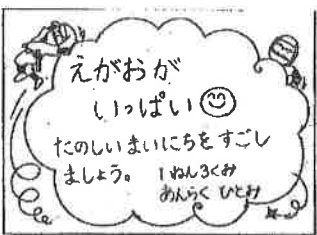 えがおが
いっぱい
たのしい まいにちを すごし
ましょう。 1ねん3くみ
あんらく ひとみ